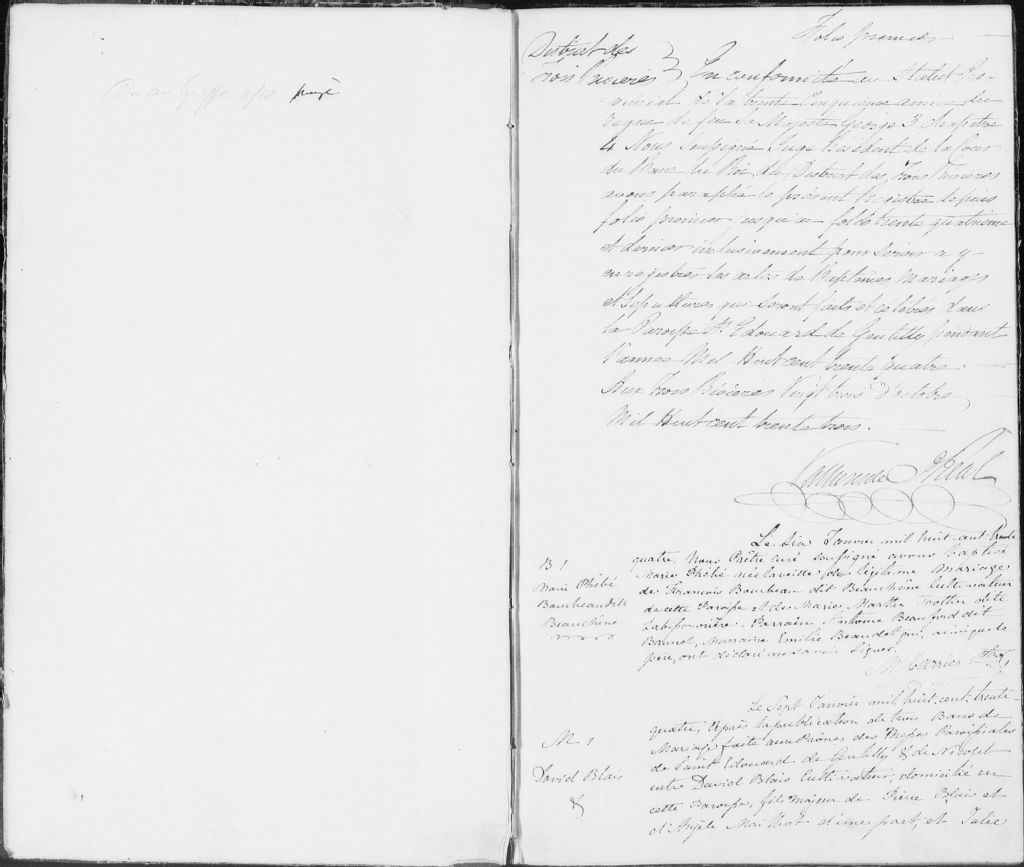 Du au Greffe
Folio premier
District des
Trois Rivieres } En conformité au Statut Pro-
-vincial de la trente Cinquieme année du
regne de feu Sa Majesté George 3 Chapitre
4 Nous Soussigné Juge Resident de la Cour
du Banc du Roi du District des Trois Rivieres
avons paraphé le présent Registre depuis
folio premier jusqu'au folio trente quatrieme
et dernier inclusivement pour servir a y
enregistrer les actes de Baptêmes Mariages
et Sepultures qui seront faits et célébrés dans
la Paroisse St. Edouard de Gentilly pendant
l'année Mil Huit cent trente quatre.
Aux Trois Rivieres Vingt trois d'octobre
Mil Huit cent trente trois.
Le Six Janvier mil huit cent trente
quatre, Nous Prêtre curé soussigné avons baptisé
B 1
Marie Phébé
Bourbeau dit
Beauchêne
Marie Phébé née la veille du légitime mariage
de François Bourbeau dit Beauchêne Cultivateur
de cette Paroisse et de Marie Marthe Trottier dite
Labissonnière. Parrain Antoine Beauford dit
Brunel, Marraine Emilie Beaudet qui, ainsi que le
pere, ont déclaré ne savoir signer.
M. Carrier Ptre
Le Sept Janvier mil huit cent trente-
quatre, Après la publication de trois Bans de
M 1
David Blais
&
Mariage faite aux Prônes des Messes Paroissiales
de Saint Edouard de Gentilly & de Nicolet
entre David Blais Cultivateur, domicilié en
cette Paroisse, fils Majeur de Pierre Blais et
d'Angèle Mailhot d'une part, et Julie